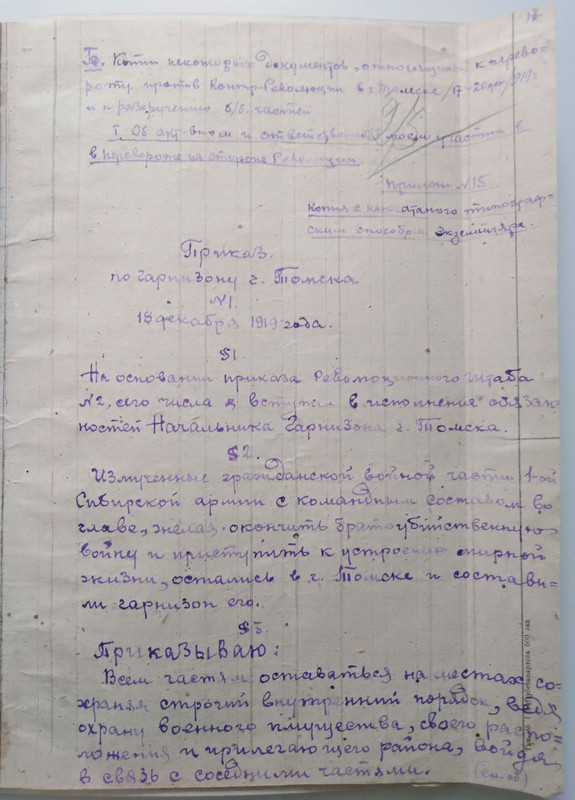 18
Гь. Копии некоторых документов, относящихся к перево-
роту против Контр-Революции в г. Томске /17-20 дек/919г/
и к разоружению б/б. частей
I. Об активном и ответственном моем участии в
в перевороте на стороне Революции.
Прилож N15
Копия с напечатаного типограф-
ским способом экземпляра.
Приказ.
по гарнизону г. Томска
N1.
18 декабря 1919 года.
§1
На основании приказа Революционного штаба
N2, сего числа я вступил в исполнение обязан-
ностей Начальника Гарнизона г. Томска.
§2.
Измученные гражданской войной части 1-ой
Сибирской армии с командным составом во
главе, желая окончить братоубийственную
войну и приступить к устроению мирной
жизни, остались в г. Томске и состави-
ли гарнизон его.
§3.
Приказываю:
Всем частям оставаться на местах со-
храняя строгий внутренний порядок, ведя
охрану военного имущества, своего распо-
ложения и прилегающего района, войдя
в связь с соседними частями.
(см. об)